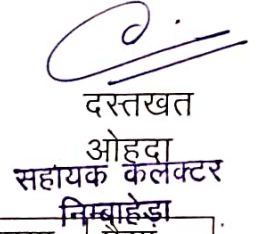 दस्तखत
ओहदा
सहायक कलेक्टर
निम्बाहेड़ा